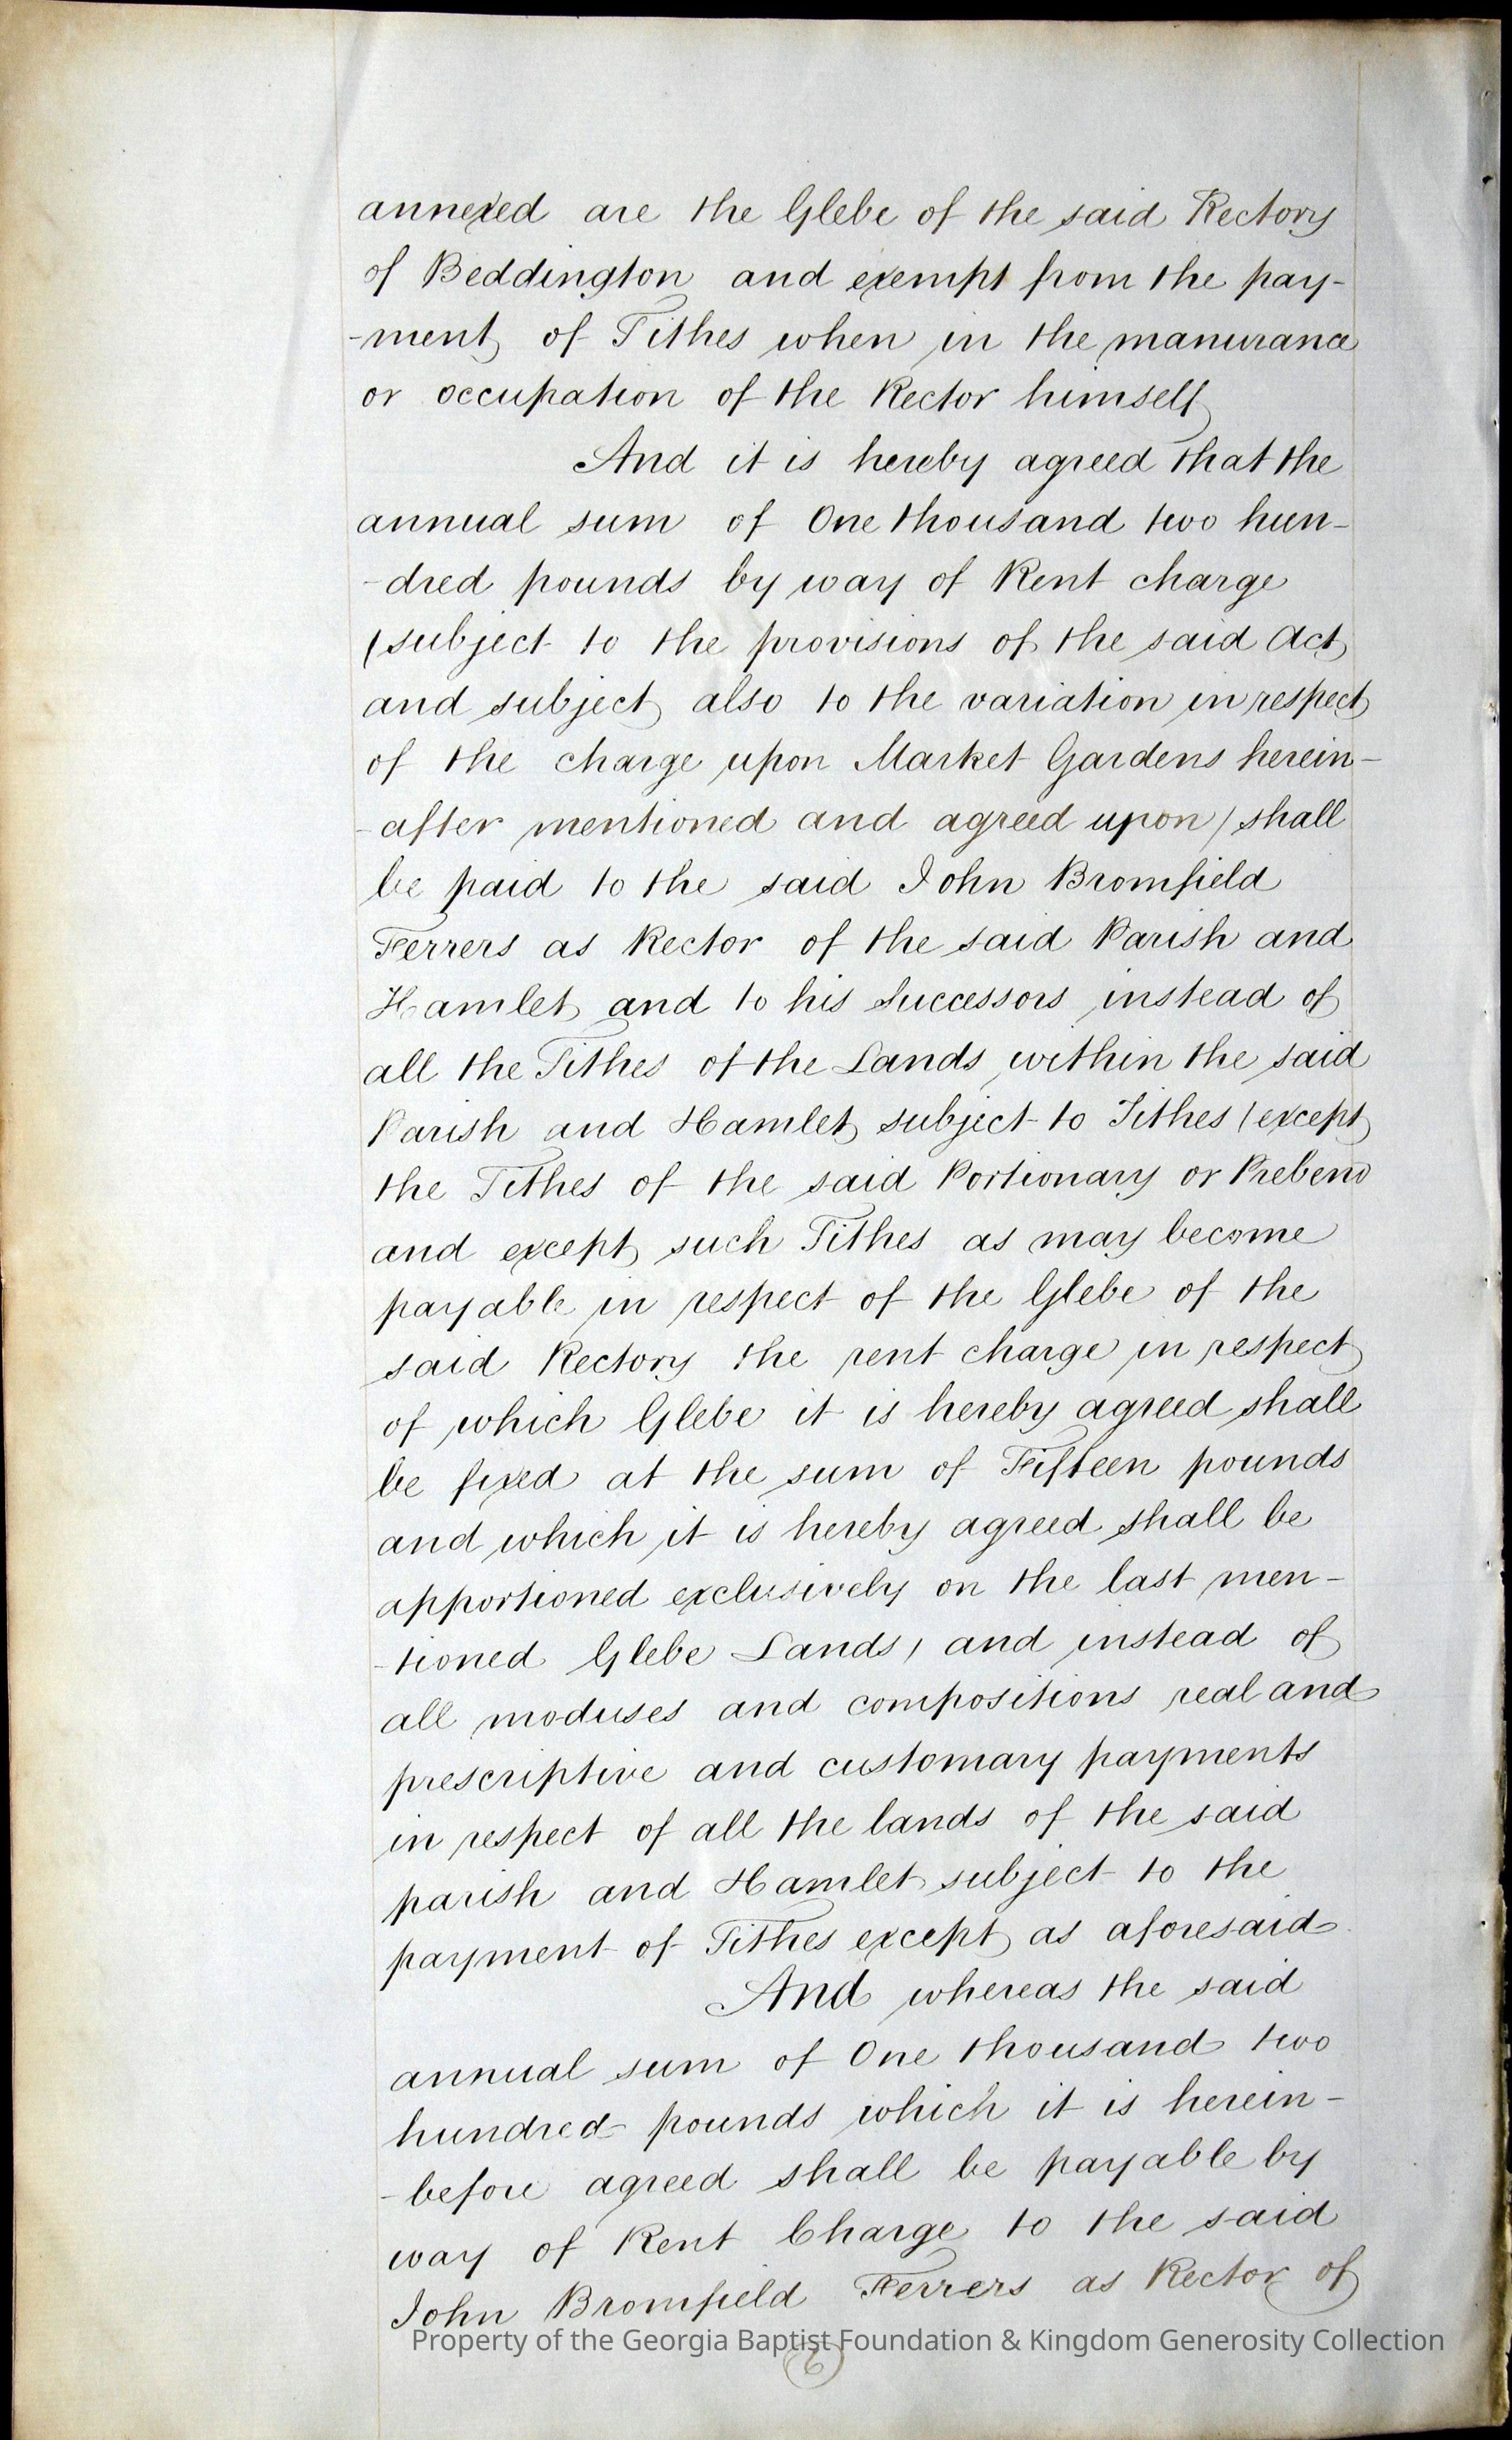 annexed are the Glebe of the said Rectory
of Beddington and exempt from the pay-
-ment of Tithes when in the manurance
or occupation of the Rector himself
And it is hereby agreed that the
annual sum of One thousand two hun-
-dred pounds by way of Rent charge
(subject to the provisions of the said Act
and subject also to the variation in respect
of the charge upon Market Gardens herein-
-after mentioned and agreed upon) shall
be paid to the said John Bromfield
Ferrers as Rector of the said Parish and
Hamlet and to his Successors instead of
all the Tithes of the Lands within the said
Parish and Hamlet subject to Tithes (except
the Tithes of the said Portionary or Prebend
and except such Tithes as may become
payable in respect of the Glebe of the
said Rectory the rent charge in respect
of which Glebe it is hereby agreed shall
be fixed at the sum of Fifteen pounds
and which it is hereby agreed shall be
apportioned exclusively on the last men-
-tioned Glebe Lands) and instead of
all moduses and compositions real and
prescriptive and customary payments
in respect of all the lands of the said
parish and Hamlet subject to the
payment of Tithes except as aforesaid
And whereas the said
annual sum of One thousand two
hundred pounds which it is herein-
-before agreed shall be payable by
way of Rent Charge to the said
John Bromfield Ferrers as Rector of
Property of the Georgia Baptist Foundation & Kingdom Generosity Collection
6